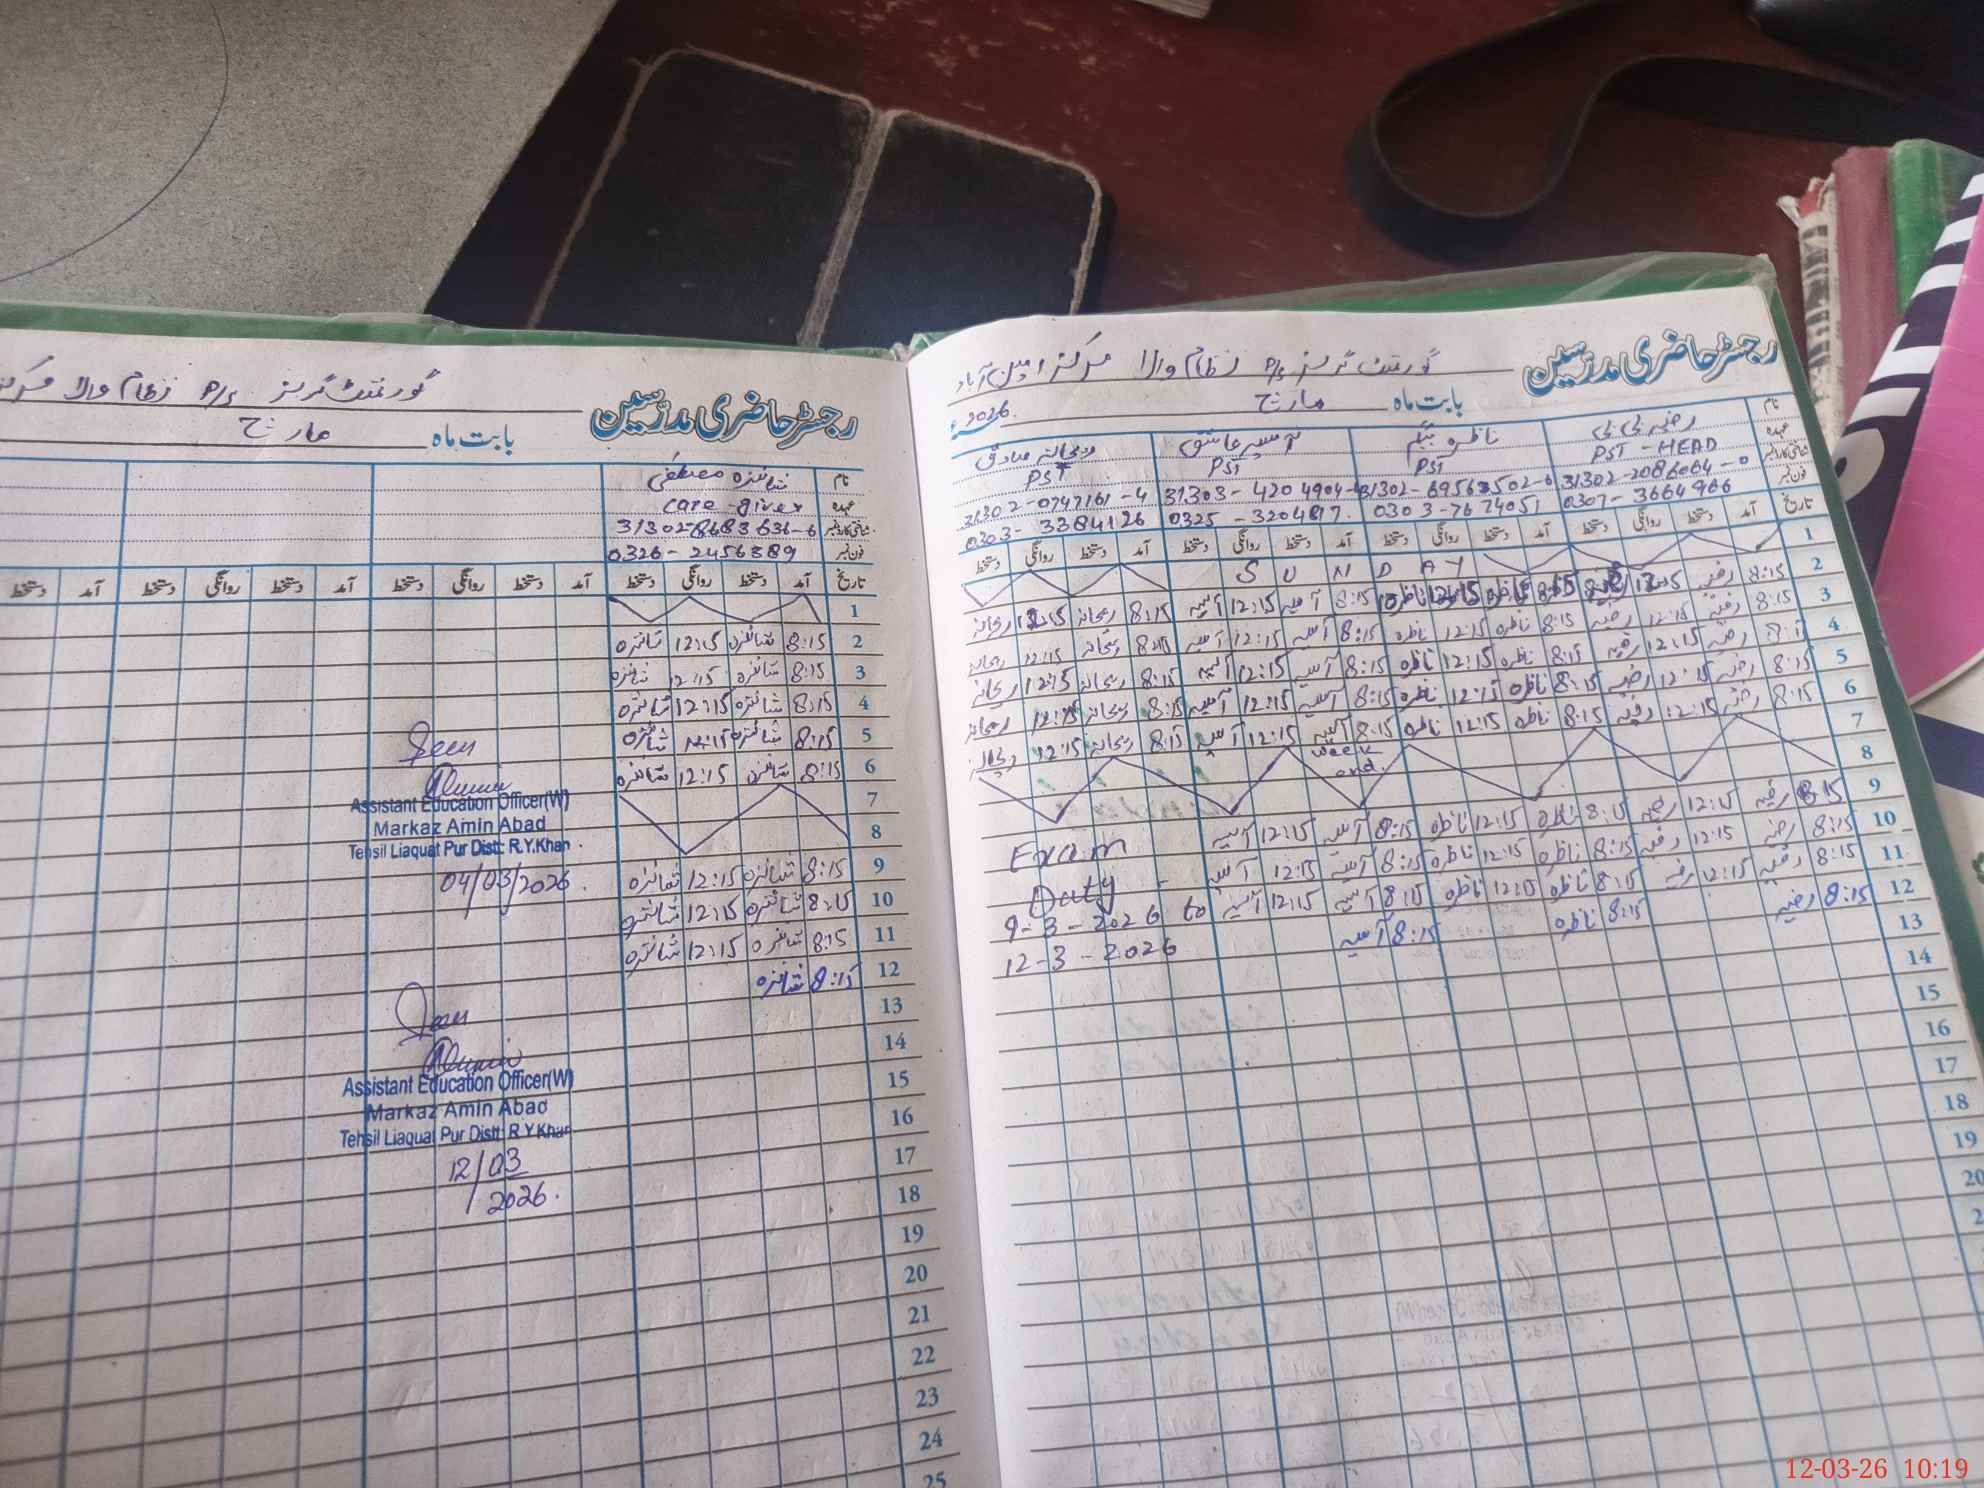 رجسٹر حاضری مدرسین گورنمنٹ گرلز P/s نظام والا مرکز
بابت ماہ مارچ
نام شائزہ مصطفی
عہدہ care giver
شناختی کارڈ نمبر 31302-8683636-6
فون نمبر 0326-2456389
تاریخ آمد دستخط روانگی دستخط آمد دستخط روانگی دستخط آمد دستخط روانگی دستخط آمد دستخط
1
2 8:15 شائزہ 12:15 شائزہ
3 8:15 شائزہ 12:15 شائزہ
4 8:15 شائزہ 12:15 شائزہ
5 8:15 شائزہ 12:15 شائزہ
6 8:15 شائزہ 12:15 شائزہ
7
8
9 8:15 شائزہ 12:15 شائزہ
10 8:15 شائزہ 12:15 شائزہ
11 8:15 شائزہ 12:15 شائزہ
12 8:15 شائزہ
13
14
15
16
17
18
19
20
21
22
23
24
25
Assistant Education Officer(W)
Markaz Amin Abad
Tehsil Liaquat Pur Distt: R.Y.Khan
04/03/2026.
Assistant Education Officer(W)
Markaz Amin Abad
Tehsil Liaquat Pur Distt: R.Y.Khan
12/03
2026.
رجسٹر حاضری مدرسین گورنمنٹ گرلز P/s نظام والا مرکز امین آباد
بابت ماہ مارچ 2026ء
نام رضیہ بی بی ناظرہ بیگم آسیہ عاشق ریحانہ صادق
عہدہ PST - HEAD PST PST PST
شناختی کارڈ نمبر 31302-2086064-0 31302-6956502-6 31303-4204904- 31302-0747161-4
فون نمبر 0307-3664966 0303-7674051 0325-3204817. 0303-3384126
تاریخ آمد دستخط روانگی دستخط آمد دستخط روانگی دستخط آمد دستخط روانگی دستخط آمد دستخط روانگی دستخط
1 SUNDAY
2 8:15 رضیہ 12:15 رضیہ 8:15 ناظرہ 12:15 ناظرہ 8:15 آسیہ 12:15 آسیہ 8:15 ریحانہ 12:15 ریحانہ
3 8:15 رضیہ 12:15 رضیہ 8:15 ناظرہ 12:15 ناظرہ 8:15 آسیہ 12:15 آسیہ 8:15 ریحانہ 12:15 ریحانہ
4 8:15 رضیہ 12:15 رضیہ 8:15 ناظرہ 12:15 ناظرہ 8:15 آسیہ 12:15 آسیہ 8:15 ریحانہ 12:15 ریحانہ
5 8:15 رضیہ 12:15 رضیہ 8:15 ناظرہ 12:15 ناظرہ 8:15 آسیہ 12:15 آسیہ 8:15 ریحانہ 12:15 ریحانہ
6 8:15 رضیہ 12:15 رضیہ 8:15 ناظرہ 12:15 ناظرہ 8:15 آسیہ 12:15 آسیہ 8:15 ریحانہ 12:15 ریحانہ
7 week
8 end.
9 8:15 رضیہ 12:15 رضیہ 8:15 ناظرہ 12:15 ناظرہ 8:15 آسیہ 12:15 آسیہ Exam
10 8:15 رضیہ 12:15 رضیہ 8:15 ناظرہ 12:15 ناظرہ 8:15 آسیہ 12:15 آسیہ Duty
11 8:15 رضیہ 12:15 رضیہ 8:15 ناظرہ 12:15 ناظرہ 8:15 آسیہ 12:15 آسیہ 9-3-2026 to
12 8:15 رضیہ 8:15 ناظرہ 8:15 آسیہ 12-3-2026
13
14
15
16
17
18
19
20
12-03-26 10:19